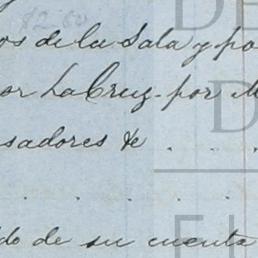 os de la Sala y po
or La Cruz. por M
sadores &c . . . .
. . . . .
do de su cuenta